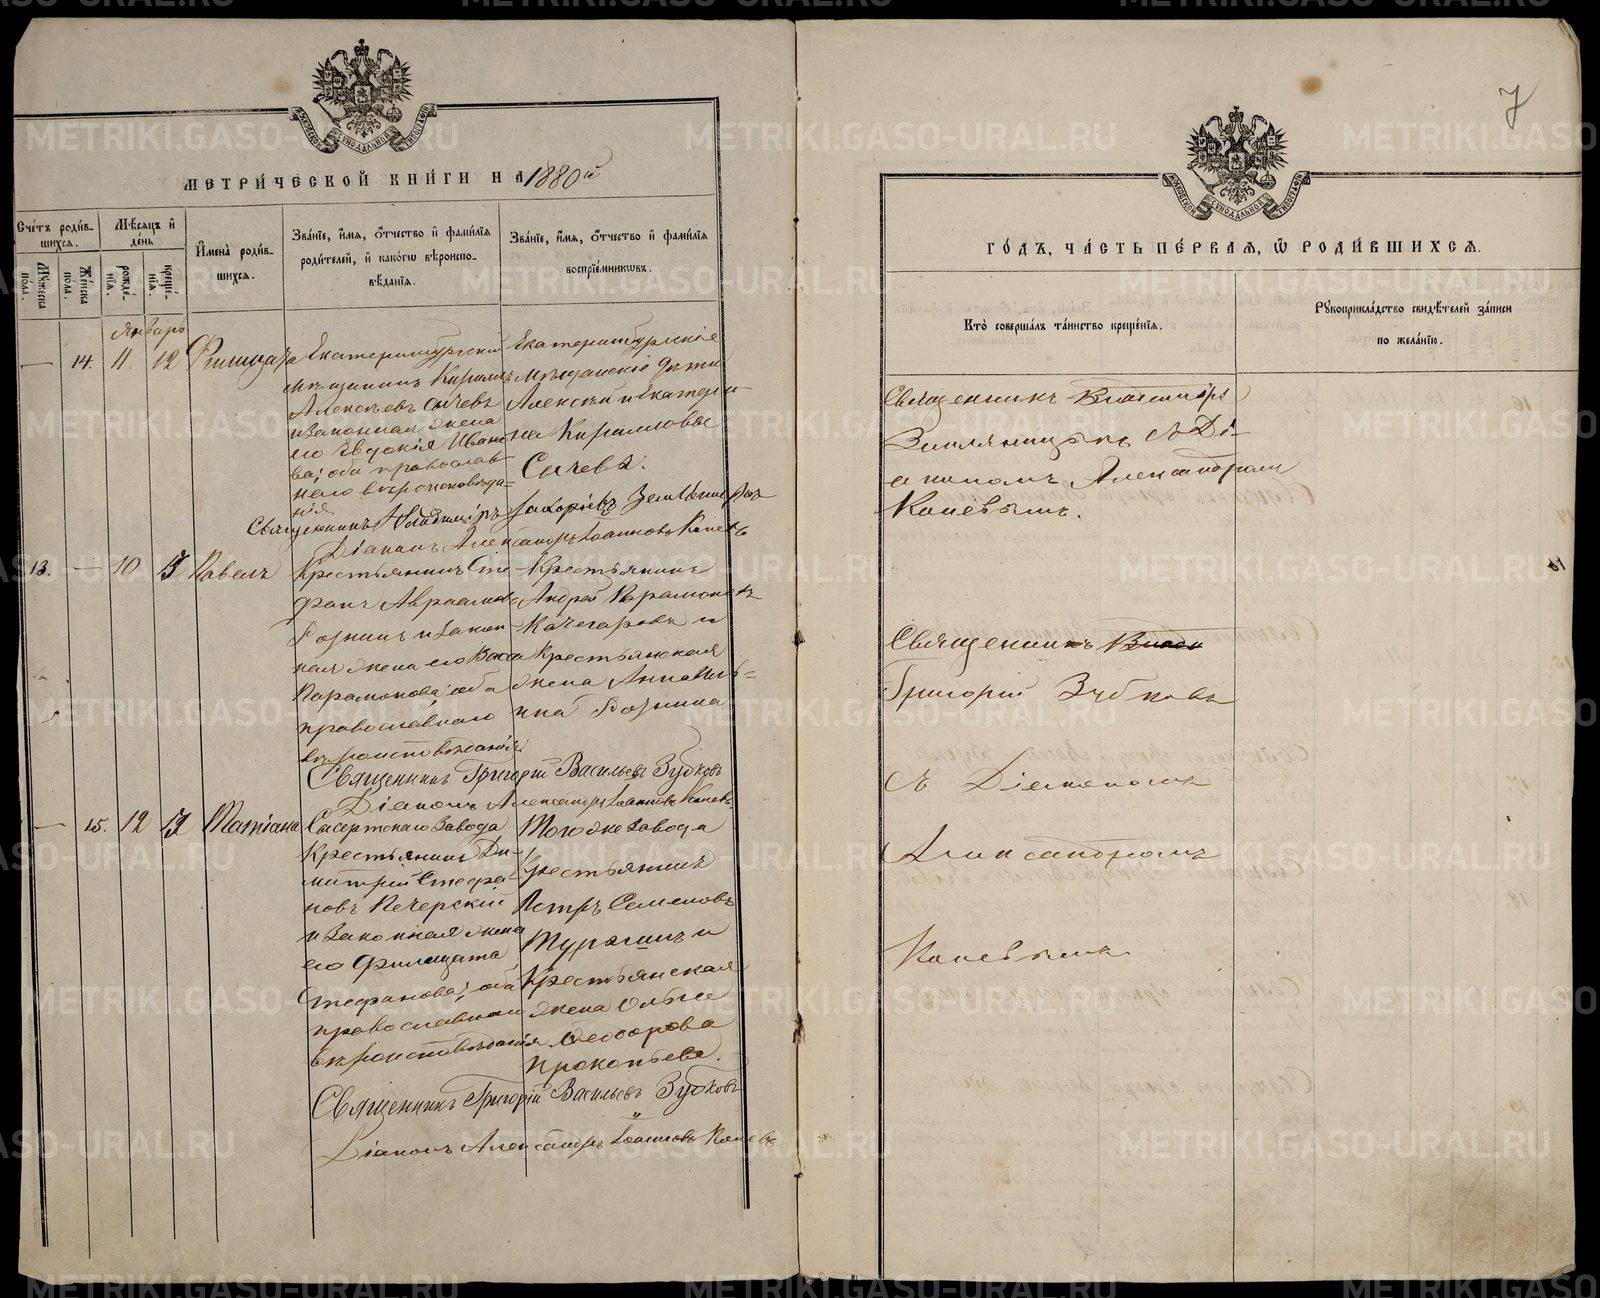 МЕТРИ́ЧЕСКОЙ КНИ́ГИ НА 1880й
Сче́тъ роди́в-
шихся.
Мꙋжеска
по́ла.
Же́нска
по́ла.
Мѣ́сяцъ и
де́нь
рожде́-
нїѧ.
креще́-
нїѧ.
Имена̀ роди́в-
шихся.
Зва́нїе, и́мя, о́тчество и фами́лїя
роди́телей, и како́гѡ вѣроиспо-
вѣ́данїя.
Зва́нїе, и́мя, о́тчество и фами́лїя
воспрїе́мникѡвъ.
Январь
— 14. 11. 12 Филицата
Екатеринбургскій
мѣщанинъ Кириллъ
Алексѣевъ Сычевъ
и законная жена
его Евдокія Ивано-
ва; оба православ-
наго вѣроисповѣда-
нія
Екатеринбургскіе
мѣщанскіе дѣти
Алексѣй и Екатери-
на Кирилловы
Сычевы.
Священникъ Владиміръ Захаріевъ Земляницынъ
Діаконъ Александръ Іоанновъ Коневъ
13. — 10 13 Павелъ
Крестьянинъ Сте-
фанъ Авраамовъ
и закон-
ная жена его Васса
Парамонова; оба
православнаго
вѣроисповѣданія
Крестьянинъ
Андрей Парамоновъ
Качегаровъ и
Крестьянская
жена Анна Иль-
ина
Священникъ Григорій Васильевъ Зубковъ
Діаконъ Александръ Іоанновъ Коневъ
— 15. 12 13 Татіана
Сысертскаго Завода
Крестьянинъ Ди-
митрій Стефа-
новъ Печерскій
и законная жена
его Филицата
Стефанова; оба
православнаго
вѣроисповѣданія
Того же завода
Крестьянинъ
Петръ Семеновъ
и
Крестьянская
жена Ольга
Ѳеодорова
Прокопьева.
Священникъ Григорій Васильевъ Зубковъ
Діаконъ Александръ Іоанновъ Коневъ
7
ГО́ДЪ, ЧА́СТЬ ПЕ́РВАЯ, Ѡ РОДИ́ВШИХСЯ.
Кто̀ соверша́лъ та́инство креще́нїя.
Рꙋкоприкла́дство свидѣ́телей за́писи
по жела́нїю.
Священникъ Владиміръ
Земляницынъ съ Ді-
акономъ Александромъ
Коневымъ.
Священникъ
Григорій Зубковъ
съ Діакономъ
Александромъ
Коневымъ
METRIKI.GASO-URAL.RU